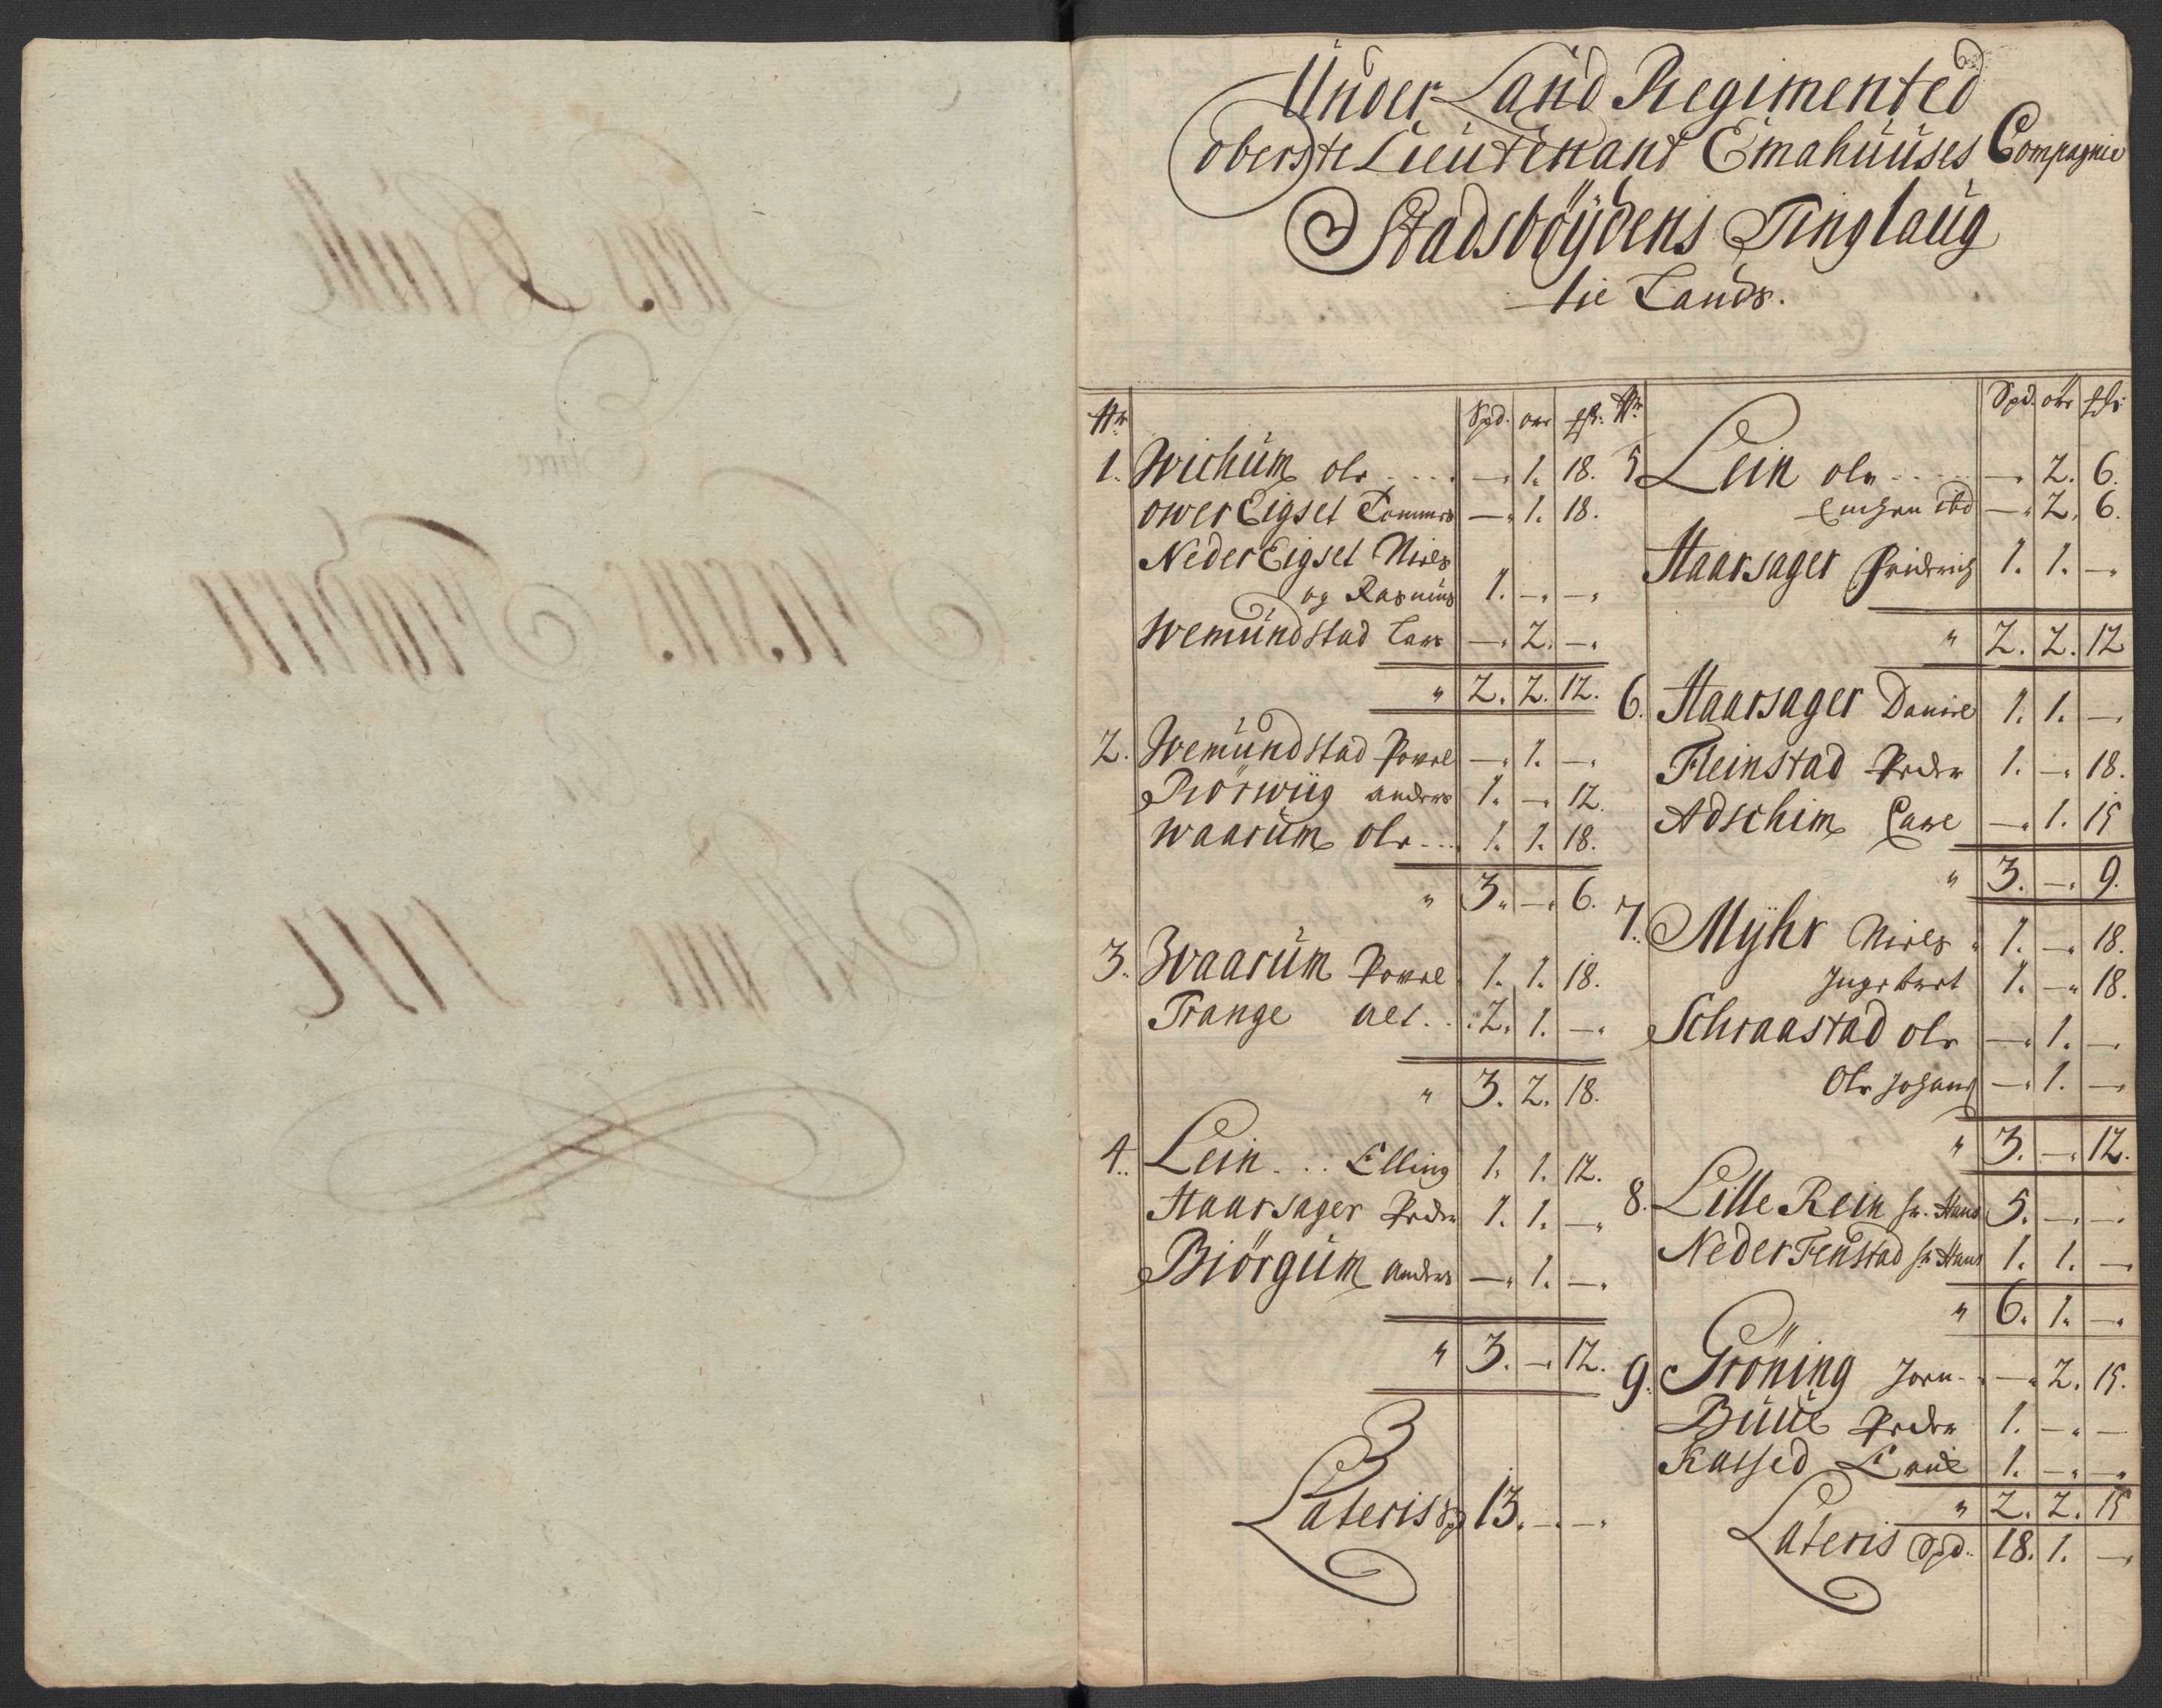 Under Land Regimented
oberste Lieutenant Emahuuses Compagnie
Stadsbøÿdens Tinglaug
til Lands.
No Spd. ort ſſ:
1. Wichum ole .... — 1. 18.
ower Eigset Tommes — 1. 18.
Neder Eigset Niels
og Rasmus 1. — —
Wemundstad Lars — 2. —
" 2. 2. 12.
2. Wemundstad Powel — 1. —
Rörwiig anders 1. — 12.
waarum ole ... 1. 1. 18.
" 3. — 6.
3. Waarum Powel 1. 1. 18.
Trange ael . . 2. 1. —
" 3. 2. 18.
4. Lein . . . Elling 1. 1. 12.
Haarsager Peder 1. 1. —
Biörgum anders — 1. —
" 3. — 12.
Lateris Spd 13. — —
No Spd. ort ſſ:
5 Lein ole .... — 2. 6.
Enchen ibd — 2. 6.
Haarsager Friderich 1. 1. —
" 2. 2. 12
6. Haarsager Daniel 1. 1. —
Fleinstad Peder 1. — 18.
Adschim Lars — 1. 15
" 3. — 9.
7. Myhr Niels 1. — 18.
Ingebret 1. — 18.
Schraastad ole — 1. —
Ole Johans — 1. —
" 3. — 12.
8. Lille Rein hr. Hans 5. — —
Neder Fenstad hr Hans 1. 1. —
" 6. 1. —
9. Gröning Joen — 2. 15.
Buue Peder 1. — —
Rassed 1. — —
" 2. 2. 15
Lateris Spd. 18. 1. —